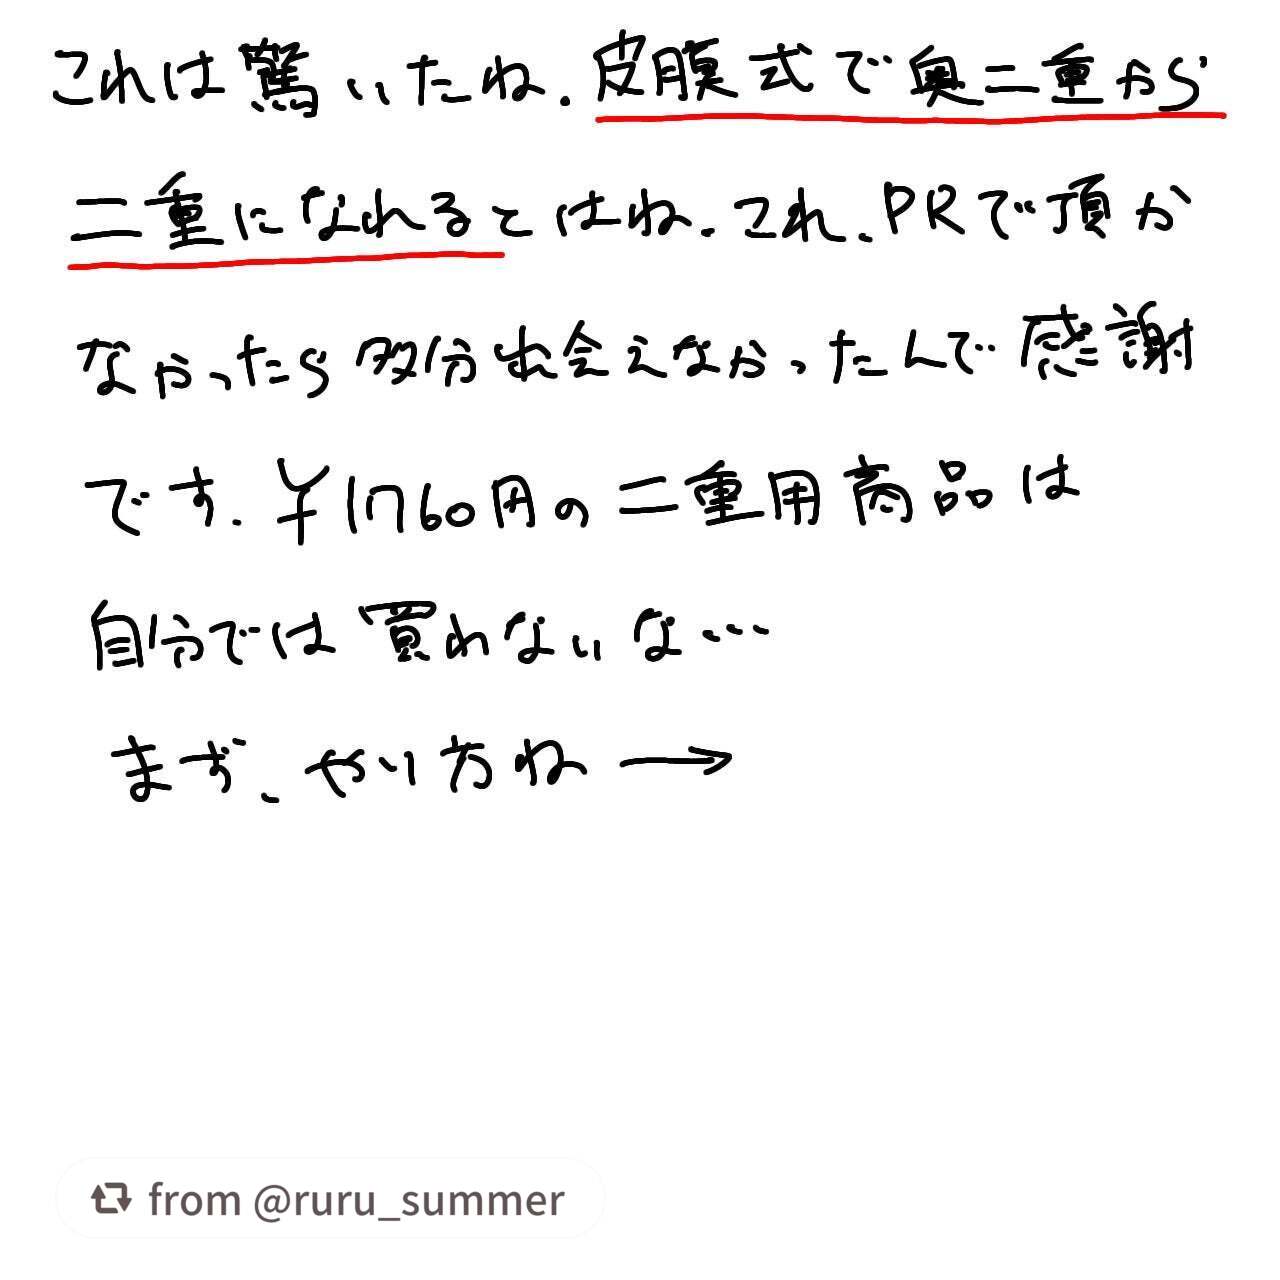 これは驚いたね.皮膜式で奥二重から
二重になれるとはね.これ、PRで頂か
なかったら多分出会えなかったんで感謝
です.¥1760円の二重用商品は
自分では買わないな…
まず、やり方ね→
from @ruru_summer